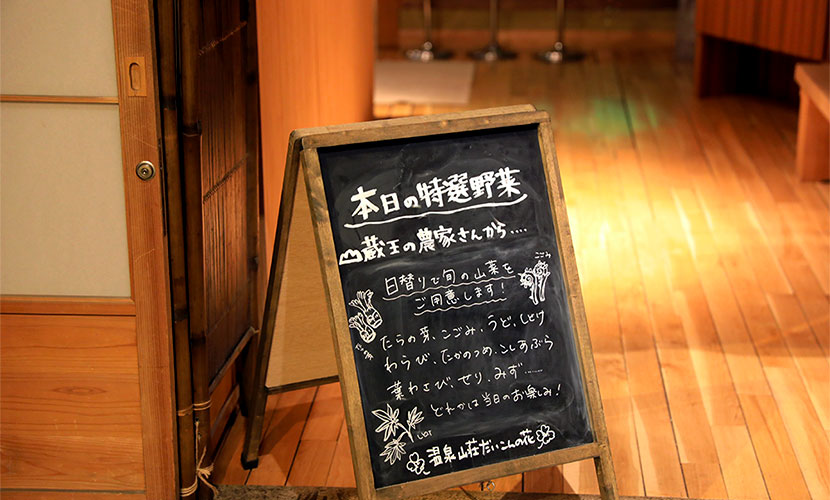 本日の特選野菜
蔵王の農家さんから....
日替りで旬の山菜を
ご用意します!
こごみ
たらの芽
たらの芽、こごみ、うど、しどけ
わらび、たかのつめ、こしあぶら
葉わさび、せり、みず......
どれかは当日のお楽しみ!
温泉山荘だいこんの花